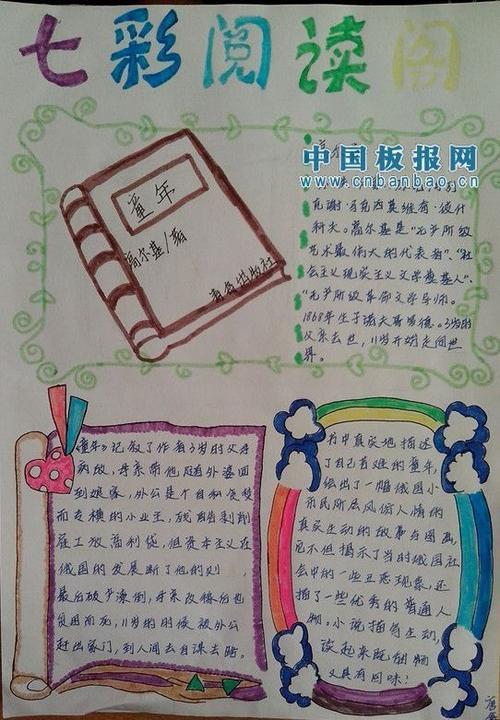 七彩阅读阁
中国板报网
www.cnbanbao.cn
童年
高尔基/著
青年出版社
克谢·马克西莫维奇·彼什
科夫。高尔基是"无产阶级
艺术最伟大的代表者"、"社
会主义现实主义文学奠基人"、
"无产阶级革命文学导师。
1868年生于诺夫哥罗德。3岁时
父亲去世,11岁开始走向世
界。
《童年》记叙了作者3岁时父母
病故,母亲带他,随外婆回
到娘家,外公是个自私贪婪
而专横的小业主,残酷剥削
雇工放高利贷,但资本主义在
俄国的发展断了他的财
最后破产潦倒,母亲改嫁后也
贫困而死,11岁的时候被外公
赶出家门,到人间去自谋去路。
书中真实地描述
了自己苦难的童年,
绘出了一幅俄国小
市民阶层风俗人情的
真实生动的故事与图画,
它不但揭示了当时俄国社
会中的一些丑恶现象,还
描了一些优秀的普通人
物。小说描写生动,
读起来既细腻
又具有回味!